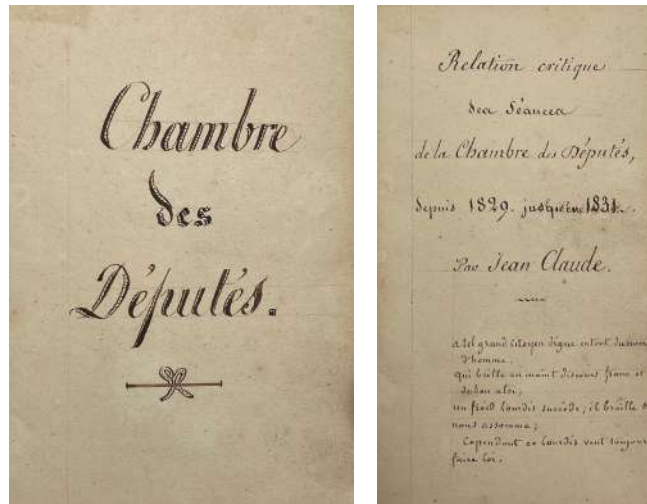 Chambre
des
Députés.
Relation critique
des Séances
de la Chambre des Députés,
depuis 1829. jusqu'en 1831.
Par Jean Claude.
a tel grand citoyen digne en tout du nom
d'homme.
qui brille en maint discours franc et
de bon aloi,
un froid lourdis succède; il braille
nous assomma;
Cependant ce lourdis veut toujours
faire loi.